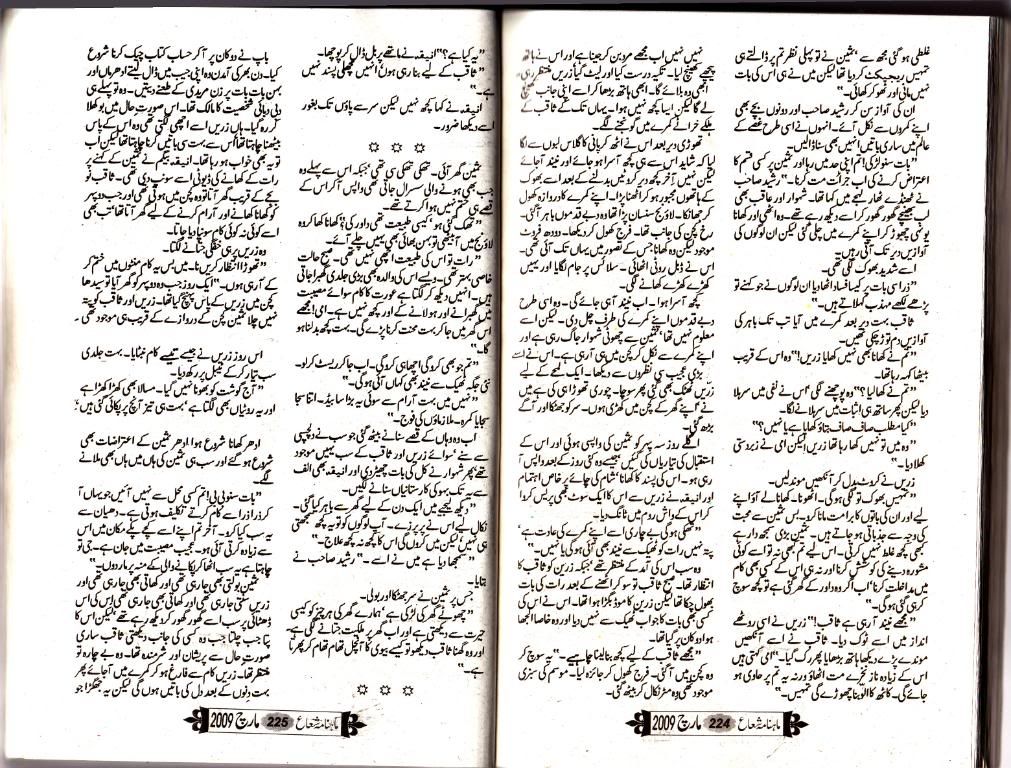 غلطی ہو گئی مجھ سے، ثمین نے تو پہلی نظر تم پر ڈالتے ہی
تمہیں ریجیکٹ کر دیا تھا لیکن میں نے ہی اس کی بات
نہیں مانی اور ٹھوکر کھائی۔"
ان کی آواز سن کر رشید صاحب اور دونوں بچے بھی
اپنے کمروں سے نکل آئے۔ انہوں نے اسی طرح غصے کے
عالم میں ساری باتیں انہیں بھی سنا ڈالیں۔
"بات سنو لڑکی! تم اپنی حد میں رہا اور ثمین پر کسی قسم کا
اعتراض کرنے کی اب جرأت مت کرنا۔" رشید صاحب
نے ٹھنڈے ٹھار لہجے میں کہا تھا۔ شہوار اور عاقب بھی
لب بھینچے گھور گھور کر اسے دیکھ رہے تھے۔ وہ اٹھی اور کھانا
یونہی چھوڑ کر اپنے کمرے میں چلی گئی لیکن ان لوگوں کی
آوازیں دیر تک آتی رہیں۔
اسے شدید بھوک لگی تھی۔
"ذرا سی بات پر کیسا فساد اٹھا دیا ان لوگوں نے جو کہنے تو
پڑھے لکھے مہذب کہلاتے ہیں۔"
ثاقب بہت دیر بعد کمرے میں آیا تب تک باہر کی
آوازیں دم توڑ چکی تھیں۔
"تم نے کھانا بھی نہیں کھایا زریں!" وہ اس کے قریب
بیٹھا کہہ رہا تھا۔
"تم نے کھالیا؟" وہ پوچھنے لگی "اس نے نفی میں سر ہلا
دیا لیکن پھر ساتھ ہی اثبات میں سر ہلانے لگا۔
"کیا مطلب صاف صاف بتاؤ کھایا ہے یا نہیں؟"
"وہ میں تو نہیں کھا رہا تھا زریں لیکن امی نے زبردستی
کھلا دیا۔"
زریں نے کروٹ بدل کر آنکھیں موند لیں۔
"تمہیں بھوک تو لگی ہو گی۔ اٹھو نا۔ کھانا لے آؤ اپنے
لیے اور ان کی باتوں کا برا مت مانا کرو۔ بس ثمین سے محبت
کی وجہ سے جذباتی ہو جاتے ہیں۔ ثمین بڑی سمجھ دار ہے
کبھی کچھ غلط نہیں کرتی۔ اس لیے تم بھی نہ تو اسے کوئی
مشورہ دینے کی کوشش کرنا اور نہ ہی اس کے کسی بھی کام
میں مداخلت کرنا' اب اگر وہ دو اور کے گھر گئی ہے تو کچھ سوچ
کر ہی گئی ہوگی۔"
"مجھے نیند آ رہی ہے ثاقب!" زریں نے اسی روٹھے
انداز میں اسے ٹوک دیا۔ ثاقب نے اسے آنکھیں
موندے پڑے دیکھا ہاتھ بڑھایا پھر رک گیا۔ "امی کہتی ہیں
اس کے زیادہ ناز نخرے مت اٹھاؤ ورنہ یہ تم پر حاوی ہو
جائے گی۔ کاٹھ کا الو بنا چھوڑے گی تمہیں۔"
نہیں نہیں اب مجھے مرد بن کر جینا ہے اور اس نے ہاتھ
پیچھے کھینچ لیا۔ تکیہ درست کیا اور لیٹ گیا زریں منتظر رہی۔
ابھی وہ بلائے گا۔ ابھی ہاتھ بڑھا کر اسے اپنی جانب کھینچ
لے گا لیکن ایسا کچھ نہیں ہوا۔ یہاں تک کے ثاقب کے
ہلکے خراٹے کمرے میں گونجنے لگے۔
تھوڑی دیر بعد اس نے اٹھ کر پانی کا گلاس لبوں سے لگا
لیا کہ شاید اس سے ہی کچھ آسرا ہو جائے اور نیند آ جائے
لیکن نہیں آخر کچھ دیر کروٹیں بدلنے کے بعد اسے بھوک
کے ہاتھوں مجبور ہو کر اٹھنا پڑا۔ اپنے کمرے کا دروازہ کھول
کر جھانکا۔ لاؤنج سنسان پڑا تھا وہ دبے قدموں باہر آ گئی۔
رخ کچن کی جانب تھا۔ فرج کھول کر دیکھا۔ دودھ فروٹ
موجود لیکن وہ کھانا جس کے تصور میں یہاں تک آئی تھی۔
اس نے ڈبل روٹی اٹھائی۔ سلائس پر جام لگایا اور یہیں
کھڑے کھڑے کھانے لگی۔
کچھ آسرا ہوا۔ اب نیند آ ہی جائے گی۔ وہ اسی طرح
دبے قدموں اپنے کمرے کی طرف چل دی۔ لیکن اسے
معلوم نہیں تھا' ثمین سے چھوٹی شہوار جاگ رہی ہے اور
اپنے کمرے سے نکل کر کچن میں ہی آ رہی ہے۔ اس نے اسے
بڑی عجیب سی نظروں سے دیکھا۔ ایک لمحے کے لیے
زریں ٹھٹک بھی گئی پھر سوچا، چوری تھوڑا ہی کی ہے میں
نے اپنے گھر کے کچن میں کھڑی ہوں۔ سر کو جھٹکا اور آگے
بڑھ گئی۔
اگلے روز سہ پہر کو ثمین کی واپسی ہوئی اور اس کے
استقبال کی تیاریاں کی گئیں' جیسے وہ کئی روز کے بعد واپس آ
رہی ہو۔ اس کی پسند کا کھانا' شام کی چائے پر خاص اہتمام
اور انیقہ نے زریں سے اس کا ایک سوٹ بھی پریس کروا
کر اس کے واش روم میں ٹانک دیا۔
"تھکی ہو گی بے چاری اسے اپنے کمرے کی عادت ہے'
پتہ نہیں رات کو ٹھیک سے نیند بھی آئی ہوگی یا نہیں۔"
وہ سب اس کی آمد کے منتظر تھے جبکہ زریں کو ثاقب کا
انتظار تھا۔ صبح ثاقب تو سو کر اٹھنے کے بعد رات کی بات
بھول چکا تھا لیکن زریں کا موڈ بگڑا ہوا تھا۔ اس نے اس کی
کسی بھی بات کا جواب ٹھیک سے نہیں دیا اور وہ خاصا الجھا
ہوا دوکان پر گیا تھا۔
"مجھے ثاقب کے لیے کچھ بنا لینا چاہیے۔" یہ سوچ کر
وہ کچن میں آ گئی۔ فرج کھول کر جائزہ لیا۔ موسم کی سبزی
موجود تھی وہ مٹر نکال کر بیٹھ گئی۔
ماہنامہ شعاع 224 مارچ 2009
"یہ کیا ہے؟" انیقہ نے ماتھے پر بل ڈال کر پوچھا۔
"ثاقب کے لیے بنا رہی ہوں انہیں مچھلی پسند نہیں
ہے۔"
انیقہ نے کہا کچھ نہیں لیکن سر سے پاؤں تک بغور
اسے دیکھا ضرور۔
ثمین گھر آئی۔ تھکی تھکی سی تھی' جبکہ اس سے پہلے وہ
جب بھی ہونے والی سسرال جاتی تھی واپس آ کر اس کے
قصے ہی ختم نہیں ہوا کرتے تھے۔
"تھک گئی ہو' کیسی طبیعت تھی دوار کی؟ کھانا کھا کر وہ
لاؤنج میں آ بیٹھی تو بہن بھائی بھی یہیں چلے آئے۔
"رات تو اس کی طبیعت اچھی نہیں تھی۔ صبح حالت
خاصی بہتر تھی۔ ویسے اس کی والدہ بھی بڑی جلدی گھبرا جاتی
ہیں۔ انہیں دیکھ کر لگتا ہے عورت کا کام سوائے مصیبت
میں گھبرانے اور ہولانے کے اور کچھ نہیں ہے۔ امی! مجھے
اس گھر میں جا کر بہت محنت کرنا پڑے گی۔ بہت کچھ بدلنا ہو
گا۔"
"تم جو بھی کرو گی! اچھا ہی کرو گی۔ اب جا کر ریسٹ کر لو۔
نئی جگہ ٹھیک سے نیند بھی کہاں آئی ہوگی۔"
"نہیں میں بہت آرام سے سوئی یہ بڑا سا بیڈ۔ اتنا سجا
سجایا کمرہ۔ ملازماؤں کی فوج۔"
اب وہ وہاں کے قصے سنانے بیٹھ گئی جو سب نے دلچسپی
سے سنے' سوائے زریں اور ثاقب کے سب یہیں موجود
تھے پھر شہوار نے کل کی بات چھیڑ دی اور انیقہ بھی الف
سے یہ تک بہو کی کارستانیاں سنانے لگیں۔
"دیکھ لیجئے میں ایک دن کے لیے گھر سے باہر کیا گئی۔
نکال لیے اس نے پر پرزے۔ آپ لوگوں کو تو یہ کچھ سمجھتی
ہی نہیں لیکن میں کروں گی اس کا کچھ نہ کچھ علاج۔"
"سمجھا دیا ہے میں نے اسے۔" رشید صاحب نے
بتایا۔
جس پر ثمین نے سر جھٹکا اور بولی۔
"چھوٹے گھر کی لڑکی ہے' ہمارے گھر کی ہر چیز کو کیسی
حیرت سے دیکھتی ہے اور اب گھر پر ملکیت جتانے لگی ہے
اور وہ گھنا ثاقب دیکھو تو کیسے بیوی کا آنچل تھام تھام کر پھرتا
ہے۔"
باپ نے دوکان پر آ کر حساب کتاب چیک کرنا شروع
کیا۔ دن بھر کی آمدن وہ اپنی جیب میں ڈال لیتے ادھر ماں اور
بہن بات بات پر زن مریدی کے طعنے دیتیں۔ وہ تو پہلے ہی
دبی دبائی شخصیت کا مالک تھا۔ اس صورت حال میں بوکھلا
کر رہ گیا۔ ہاں زریں اسے اچھی لگتی تھی وہ اس کے پاس
بیٹھنا چاہتا تھا اس سے بہت سی باتیں کرنا چاہتا تھا لیکن اب
تو یہ بھی خواب ہو رہا تھا۔ انیقہ بیگم نے ثمین کے کہنے پر
رات کے کھانے کی ڈیوٹی اسے سونپ دی تھی۔ ثاقب نو
بجے کے قریب گھر آتا تو وہ کچن میں ہوتی تھی اور جب دوپہر
کو کھانا کھانے اور آرام کرنے کے لیے گھر آتا تھا' تب بھی
اسے کوئی نہ کوئی کام سونپا دیا جاتا۔
وہ زریں پر ہی خفگی جتانے لگتا۔
"تھوڑا انتظار کریں نا۔ میں بس یہ کام منٹوں میں ختم کر
کے آ رہی ہوں۔" ایک روز جب وہ دوپہر کو گھر آیا تو سیدھا
کچن میں زریں کے پاس پہنچ گیا تھا۔ زریں اور ثاقب کو پتہ
نہیں چلا ثمین کچن کے دروازے کے قریب ہی موجود تھی۔
اس روز زریں نے جیسے تیسے کام نپٹایا۔ بہت جلدی
سب تیار کر کے ٹیبل پر رکھ دیا۔
"آج گوشت کو بھونا نہیں گیا۔ مسالا بھی کھڑا کھڑا ہے
اور یہ روٹیاں بھی لگتا ہے' بہت ہی تیز آنچ پر پکائی گئی ہیں۔"
ادھر کھانا شروع ہوا ادھر ثمین کے اعتراضات بھی
شروع ہو گئے اور سب ہی ثمین کی ہاں میں ہاں بھی ملانے
لگے۔
"بات سنو بی بی! تم کسی محل سے نہیں آئیں جو یہاں آ
کر ذرا ذرا سے کام کرتے تکلیف ہوتی ہے۔ دھیان سے
یہ سب کیا کرو۔ آخر تم اپنے اسے کچے پکے مکان میں اس
سے زیادہ کرتی آئی ہو۔ عجیب مصیبت میں جان ہے۔ جی تو
چاہتا ہے یہ سب اٹھا کر پکانے والی کے منہ پر مار دوں۔"
ثمین بولتی بھی جا رہی تھی اور کھاتی بھی جا رہی تھی اور
زریں سنتی جا رہی تھی اور کھاتی بھی جا رہی تھی' اس کی اس
ڈھٹائی پر سب اسے گھور گھور کر دیکھ رہے تھے لیکن اس کا
پتا جب چلتا جب وہ کسی کی جانب دیکھتی ثاقب ساری
صورت حال سے پریشان اور شرمندہ تھا۔ وہ بے چارہ تو
منتظر تھا۔ زریں کام سے فارغ ہو کر کمرے میں آ جائے پھر
بہت دنوں کے بعد دل کی باتیں ہوں گی لیکن یہ جھگڑا جو
ماہنامہ شعاع 225 مارچ 2009